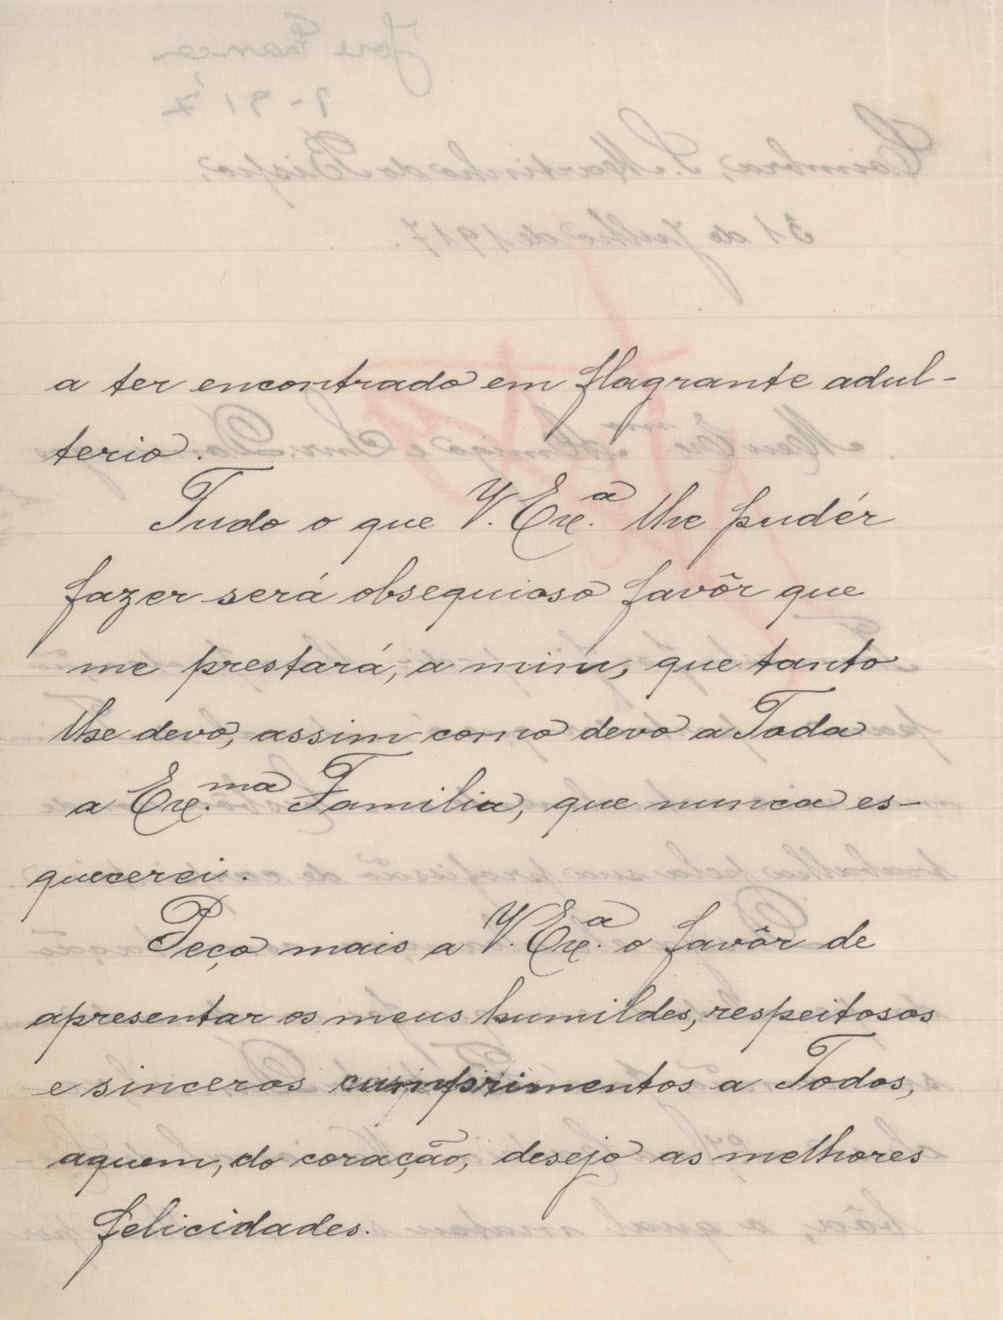 a ter encontrado em flagrante adul-
terio.
Tudo o que V. Ex.ª lhe pudér
fazer será obsequioso favôr que
me prestará, a mim, que tanto
lhe devo, assim como devo a Toda
a Ex.ma Familia, que nunca es-
quecerei.
Peço mais a V. Ex.ª o favôr de
apresentar os meus humildes, respeitosos
e sinceros cumprimentos a Todos,
aquem, do coração, desejo as melhores
felicidades.